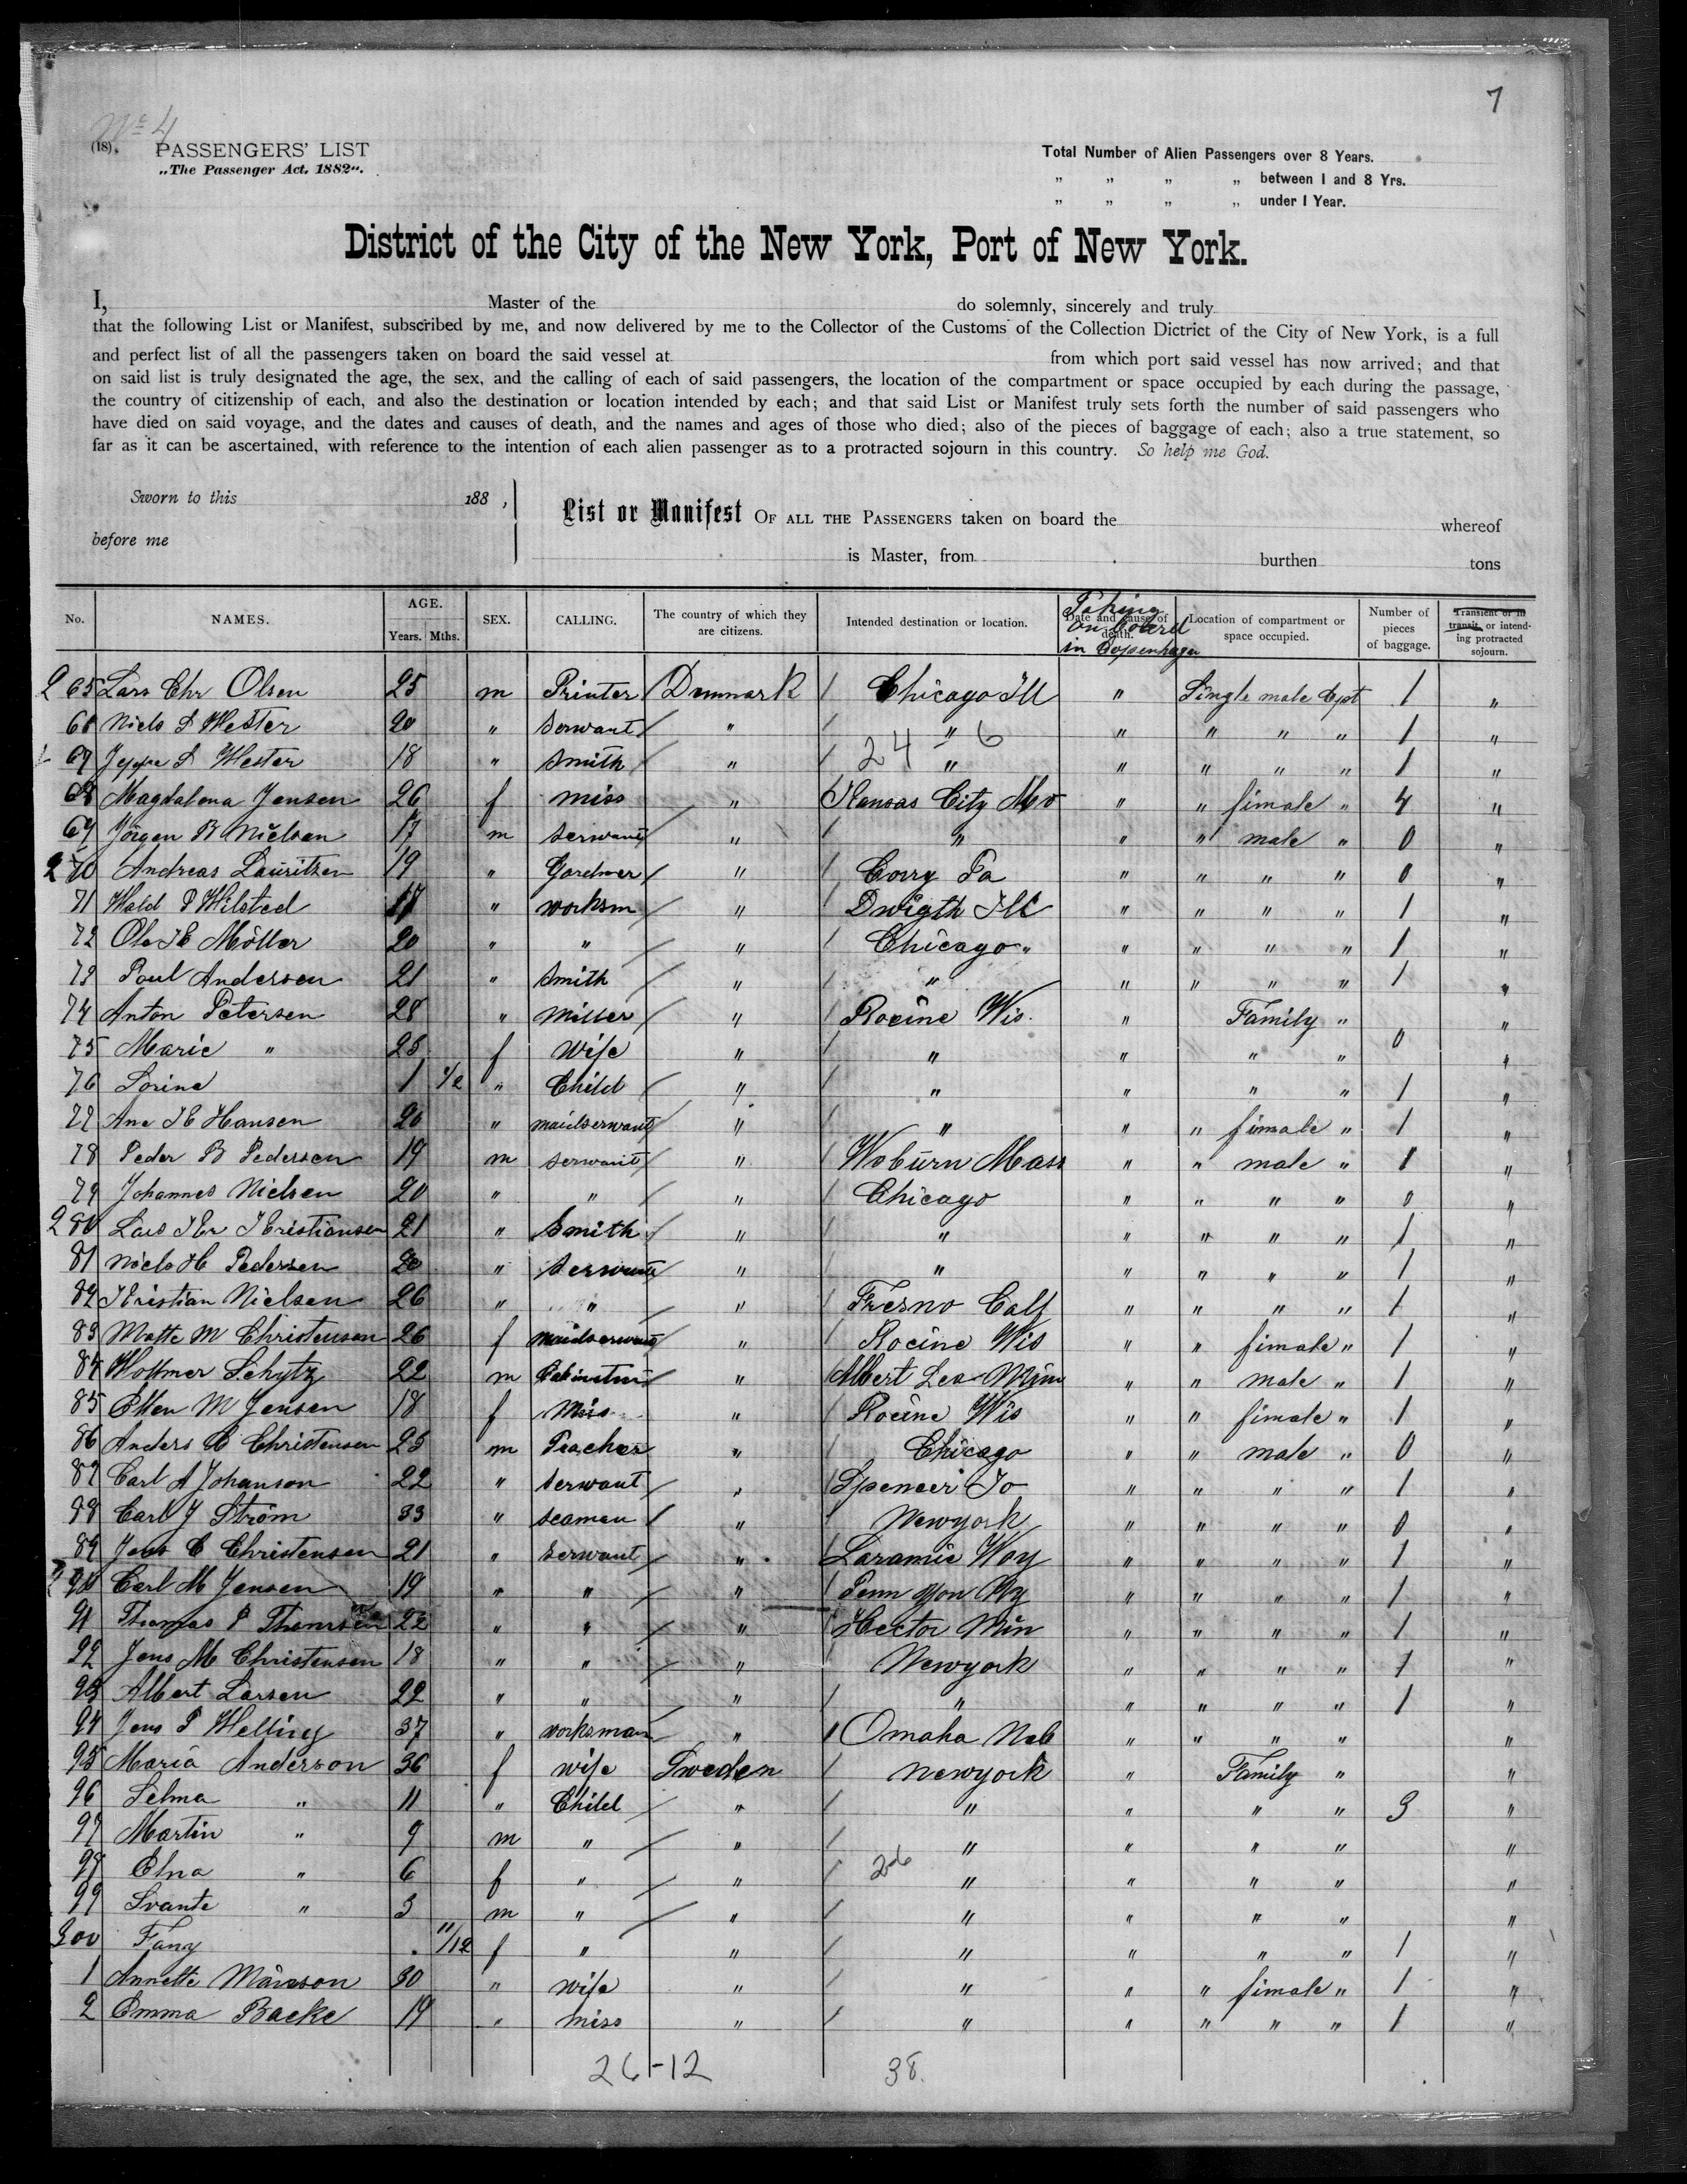 7
No 4
(18). PASSENGERS' LIST
„The Passenger Act, 1882".
Total Number of Alien Passengers over 8 Years.
„ „ „ „ between 1 and 8 Yrs.
„ „ „ „ under 1 Year.
District of the City of the New York, Port of New York.
I, Master of the do solemnly, sincerely and truly
that the following List or Manifest, subscribed by me, and now delivered by me to the Collector of the Customs of the Collection Dictrict of the City of New York, is a full
and perfect list of all the passengers taken on board the said vessel at from which port said vessel has now arrived; and that
on said list is truly designated the age, the sex, and the calling of each of said passengers, the location of the compartment or space occupied by each during the passage,
the country of citizenship of each, and also the destination or location intended by each; and that said List or Manifest truly sets forth the number of said passengers who
have died on said voyage, and the dates and causes of death, and the names and ages of those who died; also of the pieces of baggage of each; also a true statement, so
far as it can be ascertained, with reference to the intention of each alien passenger as to a protracted sojourn in this country. So help me God.
Sworn to this 188 ,
before me
List or Manifest OF ALL THE PASSENGERS taken on board the whereof
is Master, from burthen tons
No. NAMES. AGE. Years. Mths. SEX. CALLING. The country of which they are citizens. Intended destination or location. Date and cause of death. Taking on board in Copenhagen Location of compartment or space occupied. Number of pieces of baggage. Transient or in transit, or intending protracted sojourn.
265 Lars Chr Olsen 25 m Printer Denmark Chicago Ill " Single male Cpt 1 "
66 Niels S Wester 20 " Serwant " " " " " " 1 "
24-6
67 Jeppe S Wester 18 " Smith " " " " " " 1 "
68 Magdalena Jensen 26 f miss " Kansas City Mo " " fimale " 4 "
69 Jörgen B Nielsen 17 m serwant " " " " male " 0 "
270 Andreas Lauritsen 19 " Gardner " Corry Pa " " " " 0 "
71 Wald P Wilsted 17 " worksm " Dwigth Ill " " " " 1 "
72 Ole K Möller 20 " " " Chicago " " " " " 1 "
73 Poul Andersen 21 " Smith " " " " " " 1 "
74 Anton Petersen 28 " Miller " Rocine Wis. " Family " "
75 Marie " 25 f Wife " " " " " 0 "
76 Sorine 1 1/2 " Child " " " " " 1 "
77 Ane K Hansen 20 " maidserwant " " " " fimale " 1 "
78 Peder B Pedersen 19 m serwant " Woburn Mass " " male " 1 "
79 Johannes Nielsen 20 " " " Chicago " " " " 0 "
280 Lars Kr Kristiansen 21 " Smith " " " " " " 1 "
81 Niels H Pedersen 20 " Serwant " " " " " " 1 "
82 Kristian Nielsen 26 " " " Fresno Calf " " " " 1 "
83 Mette M Christensen 26 f maidserwant " Rocine Wis " " fimale " 1 "
84 Wollmer Schytz 22 m " Albert Lea Minn " " male " 1 "
85 Ellen M Jensen 18 f Miss " Rocine Wis " " fimale " 1 "
86 Anders C Christensen 25 m Teacher " Chicago " " male " 0 "
87 Carl A Johanson 22 " serwant " Spencer Jo " " " " 1 "
88 Carl J Ström 33 " seaman " Newyork " " " " 0 "
89 Jens C Christensen 21 " serwant " Laramie Woy " " " " 1 "
290 Carl M Jensen 19 " " " Penn Yon Ny " " " " 1 "
91 Thomas P Thomsen 22 " " " Hector Min " " " " 1 "
92 Jens M Christensen 18 " " " Newyork " " " " 1 "
93 Albert Larsen 22 " " " " " " " " 1 "
94 Jens P Welling 37 " worksman " Omaha Neb " " " " "
95 Maria Anderson 36 f wife Sweden Newyork " Family " "
96 Selma " 11 " Child " " " " " 3 "
97 Martin " 9 m " " " " " " "
98 Elna " 6 f " " " " " " "
99 Svante " 3 m " " " " " " "
300 Fany . 11/12 f " " " " " " 1 "
1 Annette Månson 30 " wife " " " " fimale " 1 "
2 Emma Backe 19 " miss " " " " " " 1 "
26-12 38.